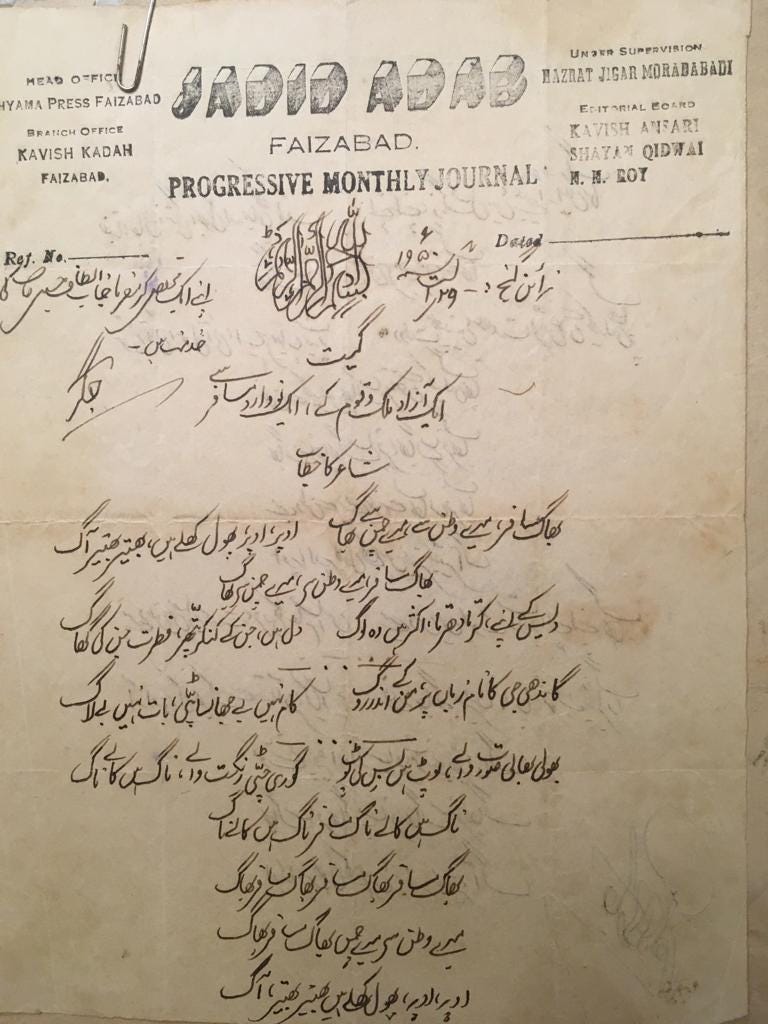 HEAD OFFICE
HYAMA PRESS FAIZABAD
BRANCH OFFICE
KAVISH KADAH
FAIZABAD.
JADID ADAB
FAIZABAD.
PROGRESSIVE MONTHLY JOURNAL
UNDER SUPERVISION
HAZRAT JIGAR MORADABADI
EDITORIAL BOARD
KAVISH ANSARI
SHAYAN QIDWAI
N. N. ROY
Ref. No.
Dated
۲۹ اگست ۱۹۵۰ء
اپنے ایک مخلص
جگر
گیت
ایک آزاد ملک و قوم کے، ایک نووارد مسافر سے
شاعر کا خطاب
بھاگ مسافر، میرے وطن سے، میرے چمن سے بھاگ
اوپر، اوپر، پھول کھلے ہیں، بھیتر بھیتر آگ
بھاگ مسافر میرے وطن سے، میرے چمن سے بھاگ
دیس کے اپنے، کرتا دھرتا، اکثر ہیں وہ لوگ
دل ہیں، جن کے کنکر پتھر، فطرت جن کی گھاگ
گاندھی جی کا نام زباں پر، من کے اندر
کام نہیں بے جھانسا پٹی، بات نہیں بے لاگ
بھولی بھالی صورت والے،
گوری چٹی رنگت والے، ناگ ہیں کالے ناگ
ناگ ہیں کالے ناگ مسافر ناگ ہیں کالے ناگ
بھاگ مسافر بھاگ مسافر بھاگ مسافر بھاگ
میرے وطن سے میرے چمن سے بھاگ مسافر بھاگ
اوپر، اوپر، پھول کھلے ہیں بھیتر بھیتر، آگ